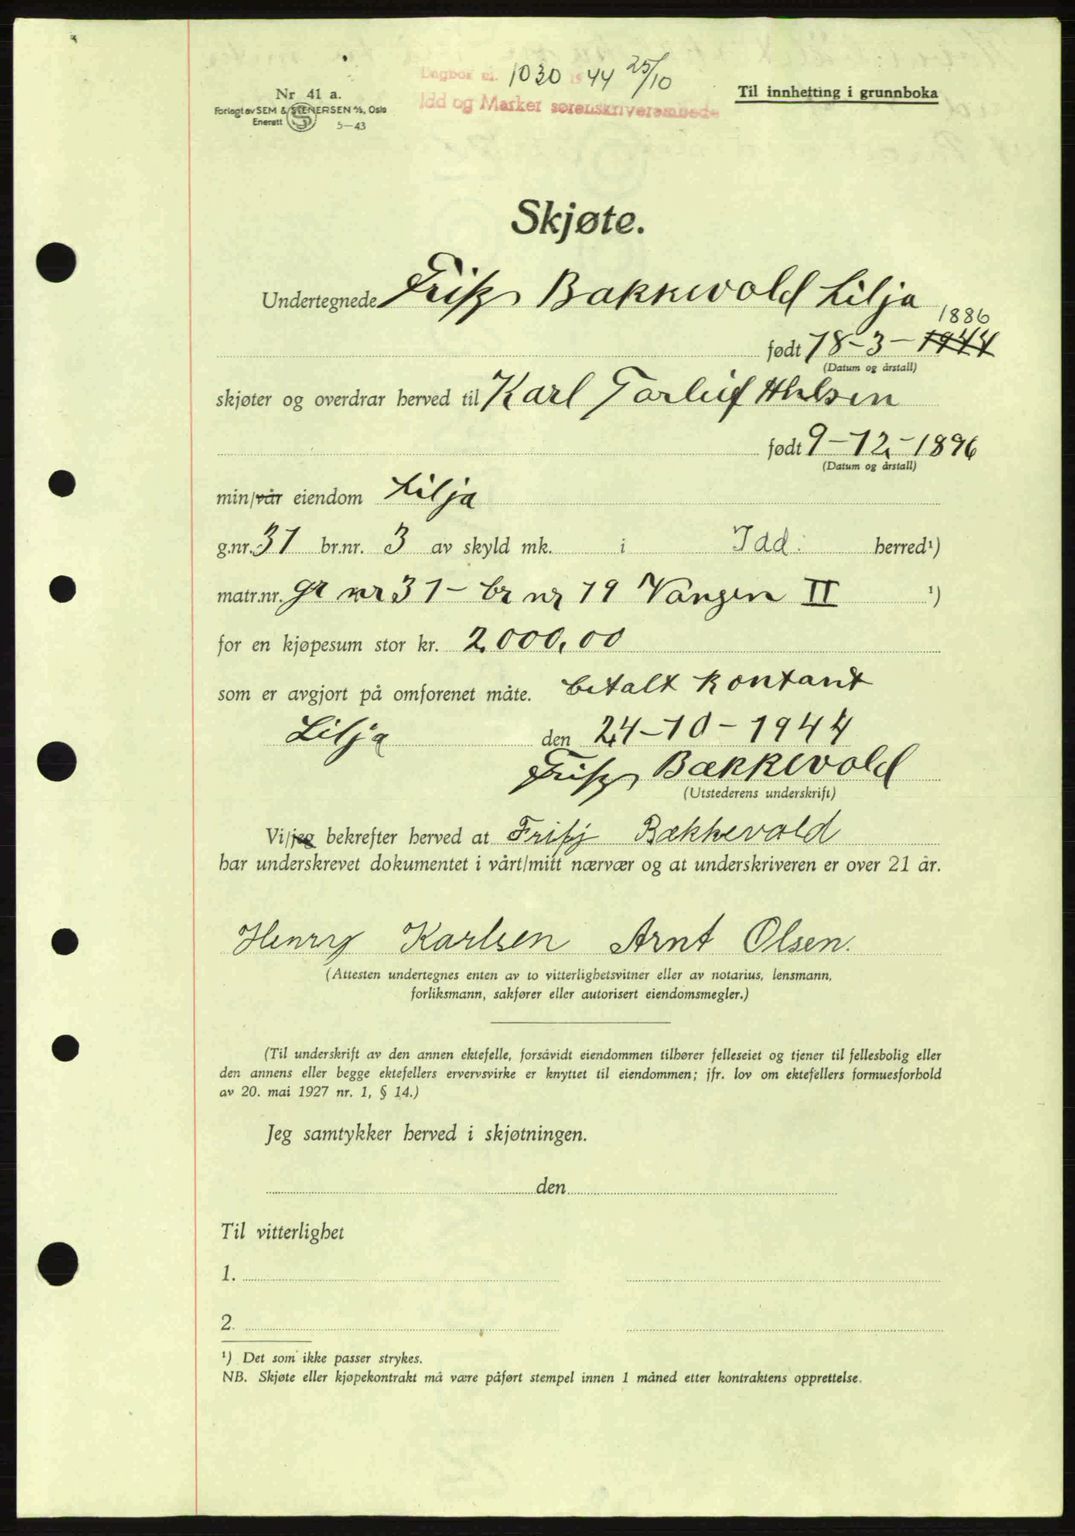 Dagbok nr. 1030 1944 25/10
Idd og Marker sorenskriverembede
Nr 41 a.
Forlagt av SEM & STENERSEN A/S, Oslo
Enerett 5-43
Til innhefting i grunnboka
Skjøte.
Undertegnede Fritz Bakkevold Lilja
1886
født 18-3-1944
(Datum og årstall)
skjøter og overdrar herved til Karl Torleif Ahlsen
født 9-12-1896
(Datum og årstall)
min/vår eiendom Lilja
g.nr. 31 br.nr. 3 av skyld mk. i Idd. herred¹)
matr.nr. gr nr 31 - br nr 19 Vangen II ¹)
for en kjøpesum stor kr. 2.000,00
som er avgjort på omforenet måte. betalt kontant
Lilja den 24-10-1944
Fritz Bækkevold
(Utstederens underskrift)
Vi/jeg bekrefter herved at Fritz Bækkevold
har underskrevet dokumentet i vårt/mitt nærvær og at underskriveren er over 21 år.
Henry Karlsen Arnt Olsen.
(Attesten undertegnes enten av to vitterlighetsvitner eller av notarius, lensmann,
forliksmann, sakfører eller autorisert eiendomsmegler.)
(Til underskrift av den annen ektefelle, forsåvidt eiendommen tilhører felleseiet og tjener til fellesbolig eller
den annens eller begge ektefellers ervervsvirke er knyttet til eiendommen; jfr. lov om ektefellers formuesforhold
av 20. mai 1927 nr. 1, § 14.)
Jeg samtykker herved i skjøtningen.
den
Til vitterlighet
1.
2.
¹) Det som ikke passer strykes.
NB. Skjøte eller kjøpekontrakt må være påført stempel innen 1 måned etter kontraktens opprettelse.